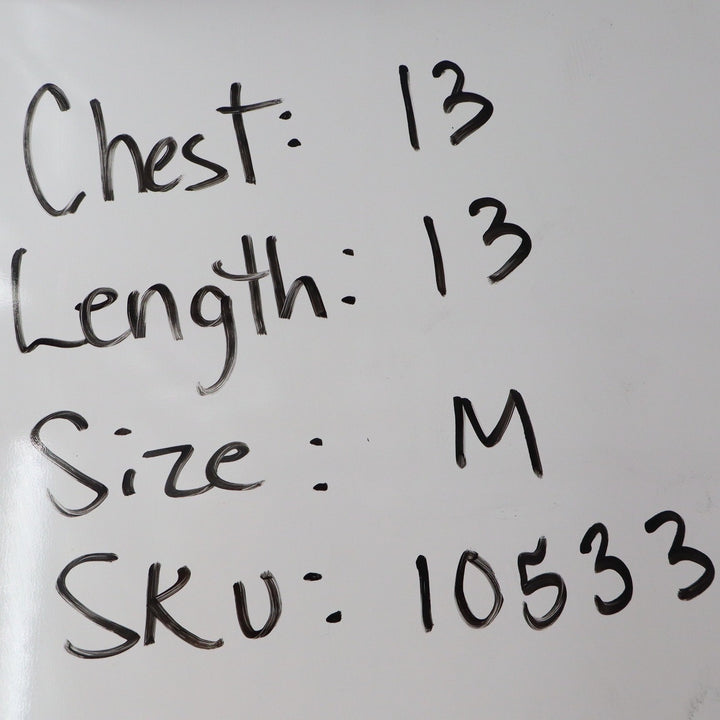 Chest: 13
Length: 13
Size: M
SKU: 10533